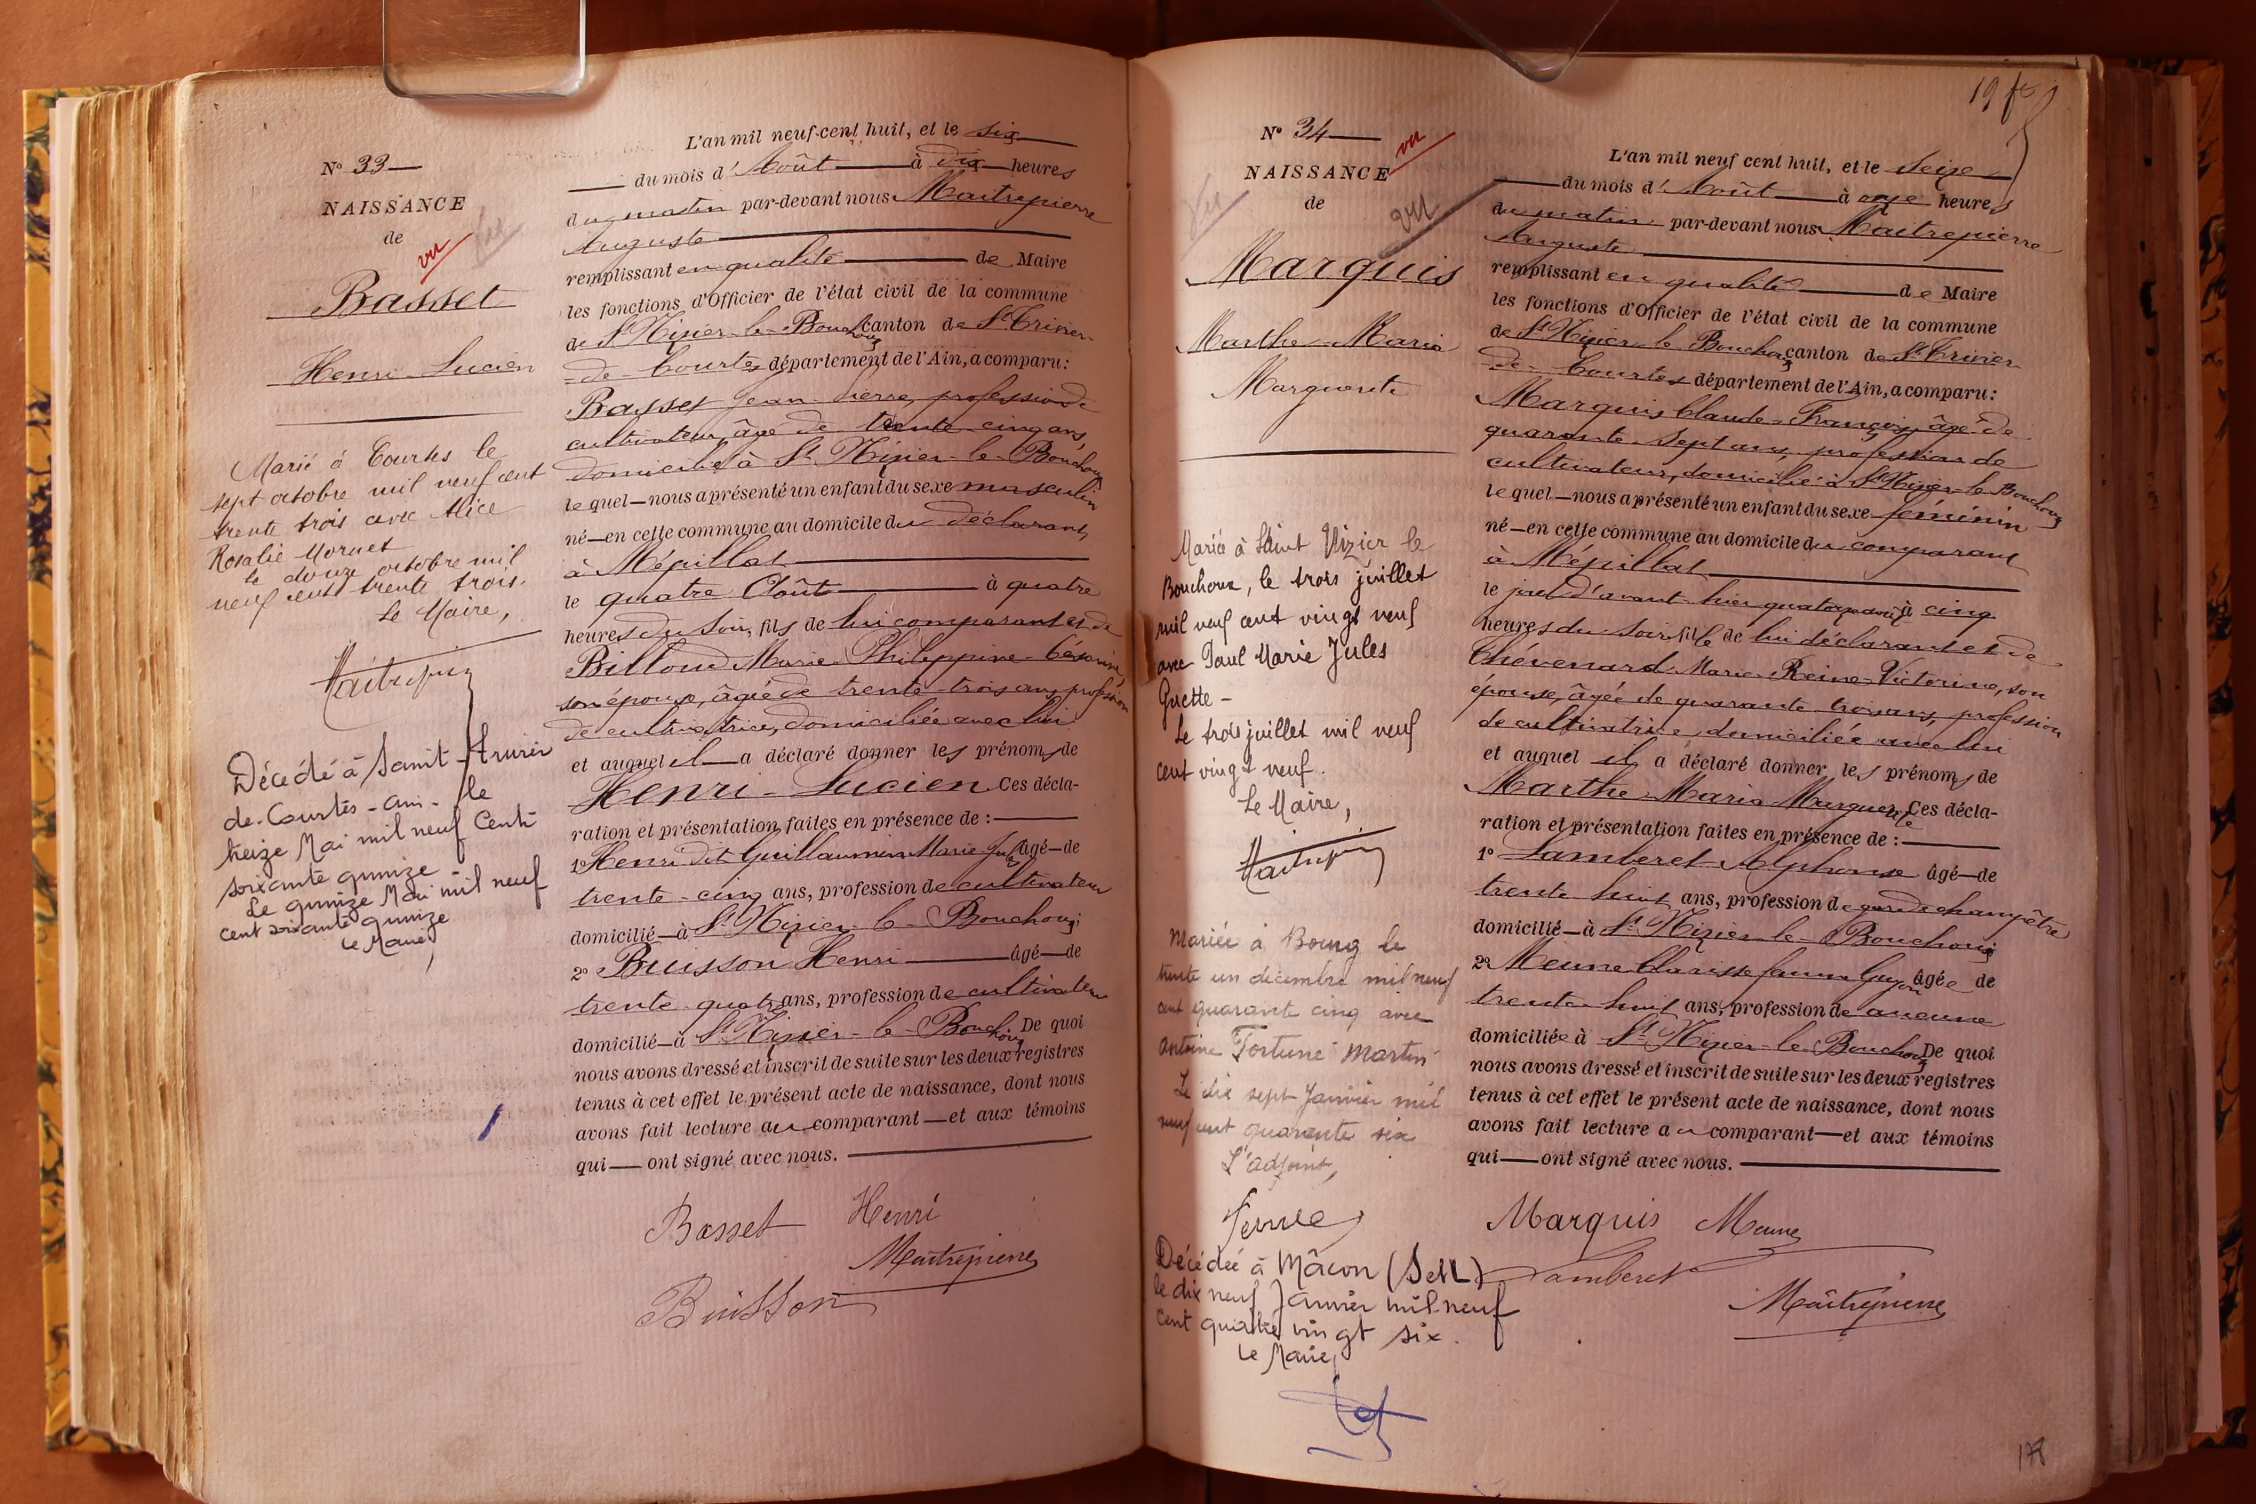 N° 33
NAISSANCE
de
vu
Basset
Henri Lucien
Marié à Courtes le
sept octobre mil neuf cent
trente trois avec Alice
Rosalie Mornet
le douze octobre mil
neuf cent trente trois.
Le Maire,
Maitrepierre
Décédé à Saint-Trivier
de-Courtes-Ain- le
treize Mai mil neuf Cent
soixante quinze
Le quinze Mai mil neuf
cent soixante quinze
Le Maire,
L'an mil neuf-cent huit, et le six
du mois d'Août à dix heures
du matin par-devant nous Maitrepierre
Auguste
remplissant en qualité de Maire
les fonctions d'Officier de l'état civil de la commune
de St Nizier-le-Bouchoux canton de St Trivier-
-de-Courtes département de l'Ain, a comparu:
Basset Jean Pierre, profession de
cultivateur, âgé de trente-cinq ans,
domicilié à St Nizier-le-Bouchoux
lequel nous a présenté un enfant du sexe masculin
né en cette commune au domicile du déclarant,
à Mépillat
le quatre Août à quatre
heures du soir, fils de lui comparant et de
Billoud Marie Philippine Césarine,
son épouse, âgée de trente-trois ans, profession
de cultivatrice, domiciliée avec lui
et auquel il a déclaré donner les prénoms de
Henri-Lucien Ces décla-
ration et présentation faites en présence de :
1° Henri dit Guillaumin Marie Jules âgé de
trente-cinq ans, profession de cultivateur
domicilié à St Nizier-le-Bouchoux;
2° Buisson Henri âgé de
trente-quatre ans, profession de cultivateur
domicilié à St Nizier-le-Bouchoux De quoi
nous avons dressé et inscrit de suite sur les deux registres
tenus à cet effet le présent acte de naissance, dont nous
avons fait lecture au comparant et aux témoins
qui ont signé avec nous.
Basset Henri
Maitrepierre
Buisson
N° 34
vu
NAISSANCE
de
vu
Marquis
Marthe Maria
Marguerite
Mariée à Saint Nizier le
Bouchoux, le trois juillet
mil neuf cent vingt neuf
avec Paul Marie Jules
Guette -
Le trois juillet mil neuf
cent vingt neuf.
Le Maire,
Maitrepierre
Mariée à Bourg le
trente un décembre mil neuf
cent quarante cinq avec
Antoine Fortuné Martin
Le dix sept Janvier mil
neuf cent quarante six
L'adjoint,
Décédée à Mâcon (S et L)
le dix neuf Janvier mil neuf
cent quatre vingt six.
Le Maire,
19
L'an mil neuf cent huit, et le seize
du mois d'Août à onze heures
du matin par-devant nous Maitrepierre
Auguste
remplissant en qualité de Maire
les fonctions d'Officier de l'état civil de la commune
de St Nizier-le-Bouchoux canton de St Trivier-
de-Courtes département de l'Ain, a comparu:
Marquis Claude-François, âgé de
quarante-sept ans, profession de
cultivateur, domicilié à St Nizier-le-Bouchoux
lequel nous a présenté un enfant du sexe féminin
né en cette commune au domicile du comparant
à Mépillat
le jour d'avant-hier quatorze août à cinq
heures du soir fille de lui déclarant et de
Chévenard Marie-Reine-Victorine, son
épouse, âgée de quarante trois ans, profession
de cultivatrice, domiciliée avec lui
et auquel il a déclaré donner les prénoms de
Marthe-Maria Marguerite Ces décla-
ration et présentation faites en présence de :
1° Lamberet Alphonse âgé de
trente huit ans, profession de garde champêtre
domicilié à St Nizier-le-Bouchoux;
2° Meune Clarisse femme Guyon âgée de
trente huit ans, profession de aucune
domiciliée à St Nizier-le-Bouchoux De quoi
nous avons dressé et inscrit de suite sur les deux registres
tenus à cet effet le présent acte de naissance, dont nous
avons fait lecture au comparant et aux témoins
qui ont signé avec nous.
Marquis Meune
Lamberet
Maitrepierre
178